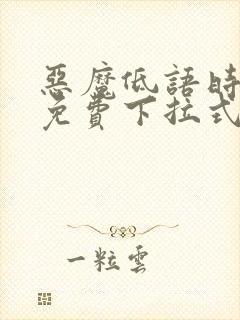 惡魔低語時
免費下拉式
一粒雲